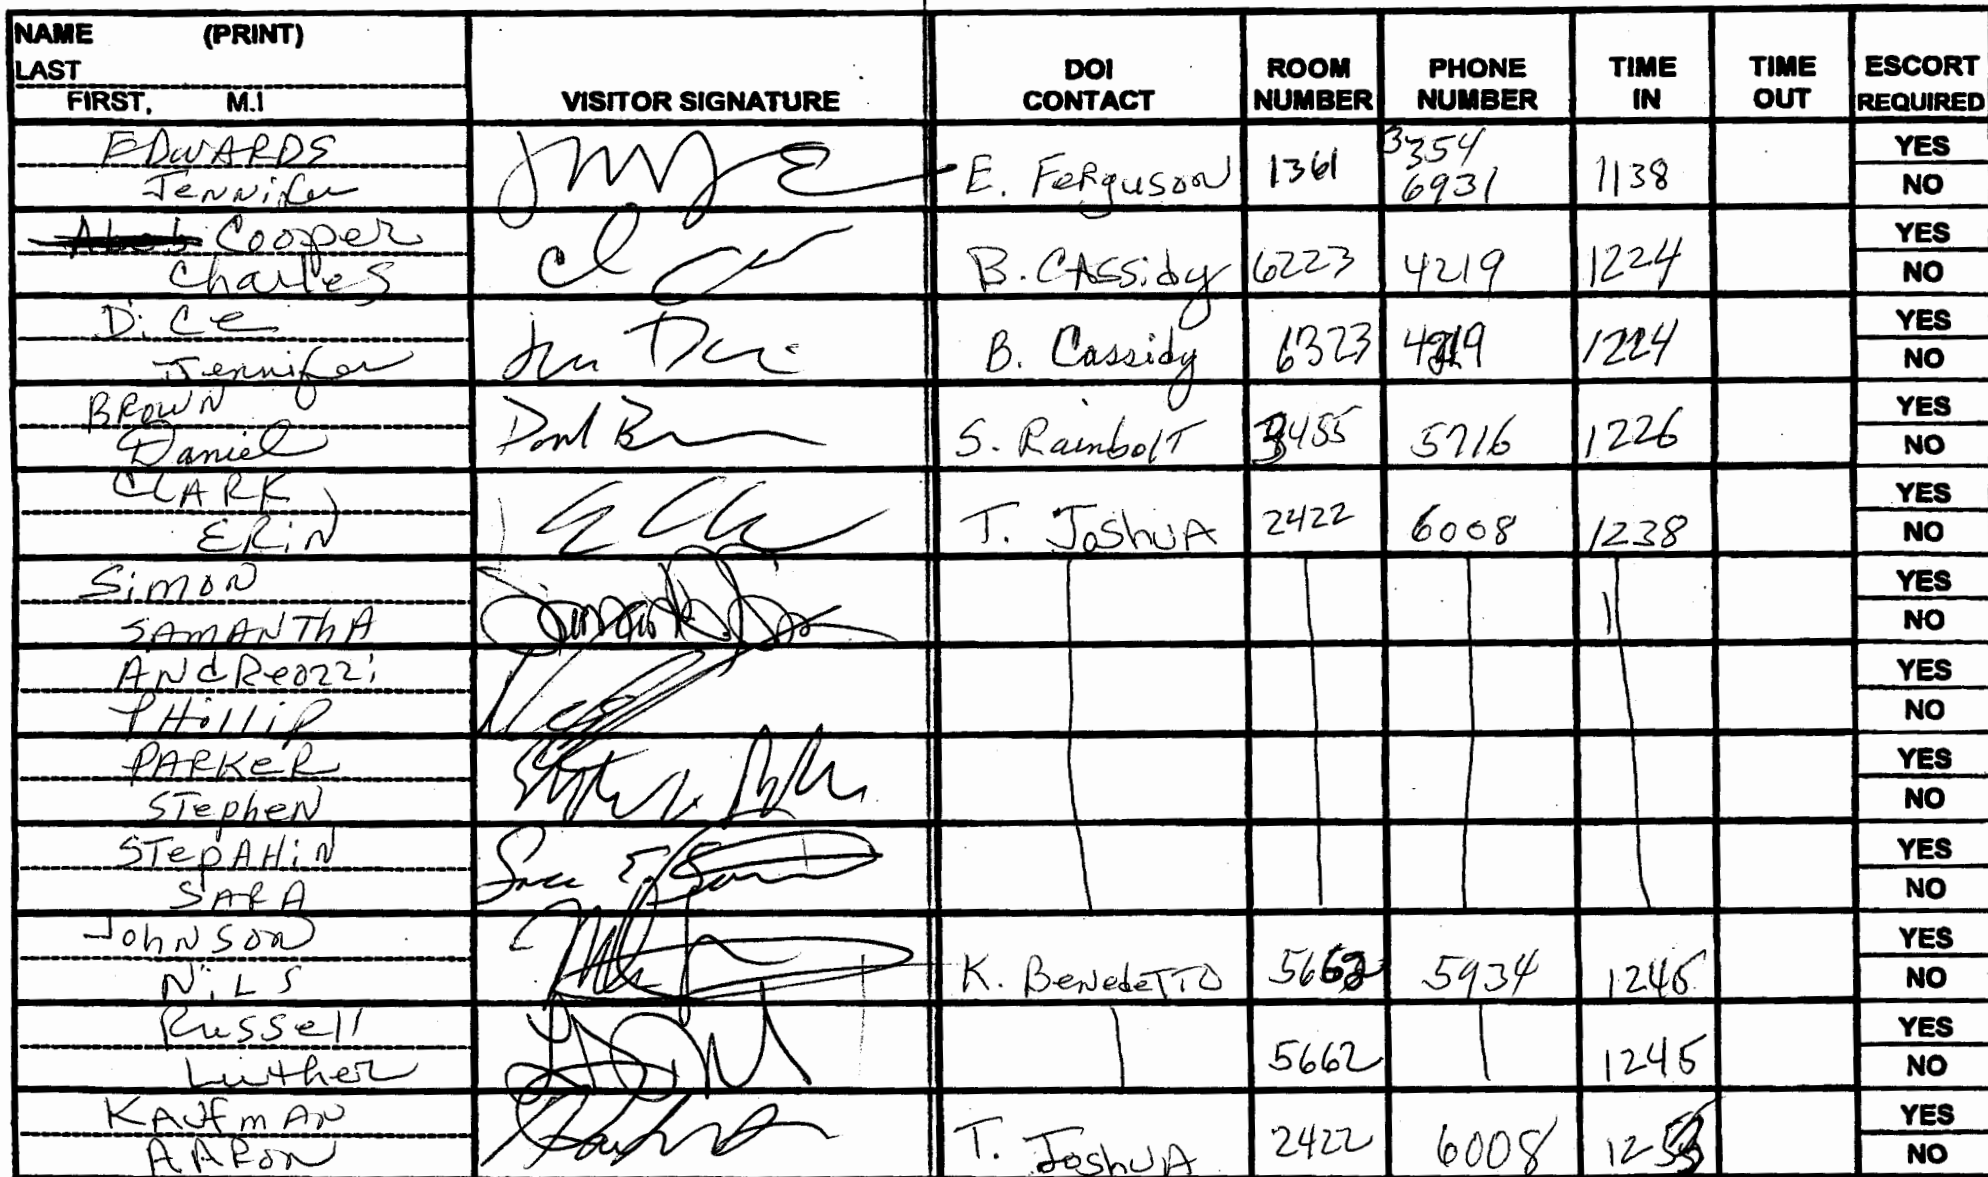 NAME (PRINT)
LAST
FIRST, M.I
VISITOR SIGNATURE
DOI CONTACT
ROOM NUMBER
PHONE NUMBER
TIME IN
TIME OUT
ESCORT REQUIRED
EDWARDS
Jennifer
E. Ferguson 1361 3354 6931 1138 YES NO
Cooper
Charles
B. CASSidy 6223 4219 1224 YES NO
Dice
Jennifer
B. Cassidy 6323 4219 1224 YES NO
BROWN
Daniel
S. RainbolT 3455 5716 1226 YES NO
CLARK
ERiN
T. JoshuA 2422 6008 1238 YES NO
SimoN
SAMANThA
YES NO
ANdReozzi
PHilliP
YES NO
PARKeR
STepheN
YES NO
STepAHiN
SARA
YES NO
JohNSoN
NiLS
K. BeNedeTTO 5662 5934 1245 YES NO
Russell
Luther
5662 1245 YES NO
KAufmAN
AARON
T. JoshuA 2422 6008 YES NO